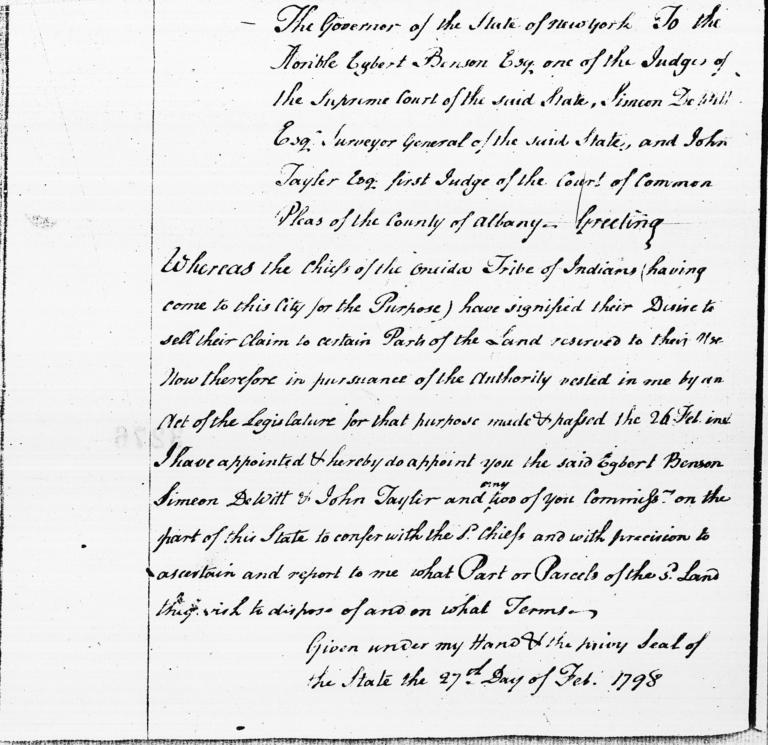 — The Governor of the State of new york To the
Honble Egbert Benson Esq. one of the Judges of
the Supreme Court of the said State, Simeon De Witt
Esqr Surveyor General of the said State, and John
Tayler Esq. first Judge of the Court of Common
Pleas of the County of Albany— Greeting
Whereas the Chiefs of the Oneida Tribe of Indians (having
come to this City for the Purpose) have signified their Desire to
sell their Claim to certain Parts of the Land reserved to their Use
Now therefore in pursuance of the Authority vested in me by an
Act of the Legislature for that purpose made & passed the 26 Feb. inst
I have appointed & hereby do appoint you the said Egbert Benson
Simeon DeWitt & John Tayler and any two of you Commissrs on the
part of this State to confer with the sd. Chiefs and with precision to
ascertain and report to me what Part or Parcels of the sd. Land
they wish to dispose of and on what Terms—
Given under my Hand & the privy Seal of
the State the 27th Day of Feb. 1798